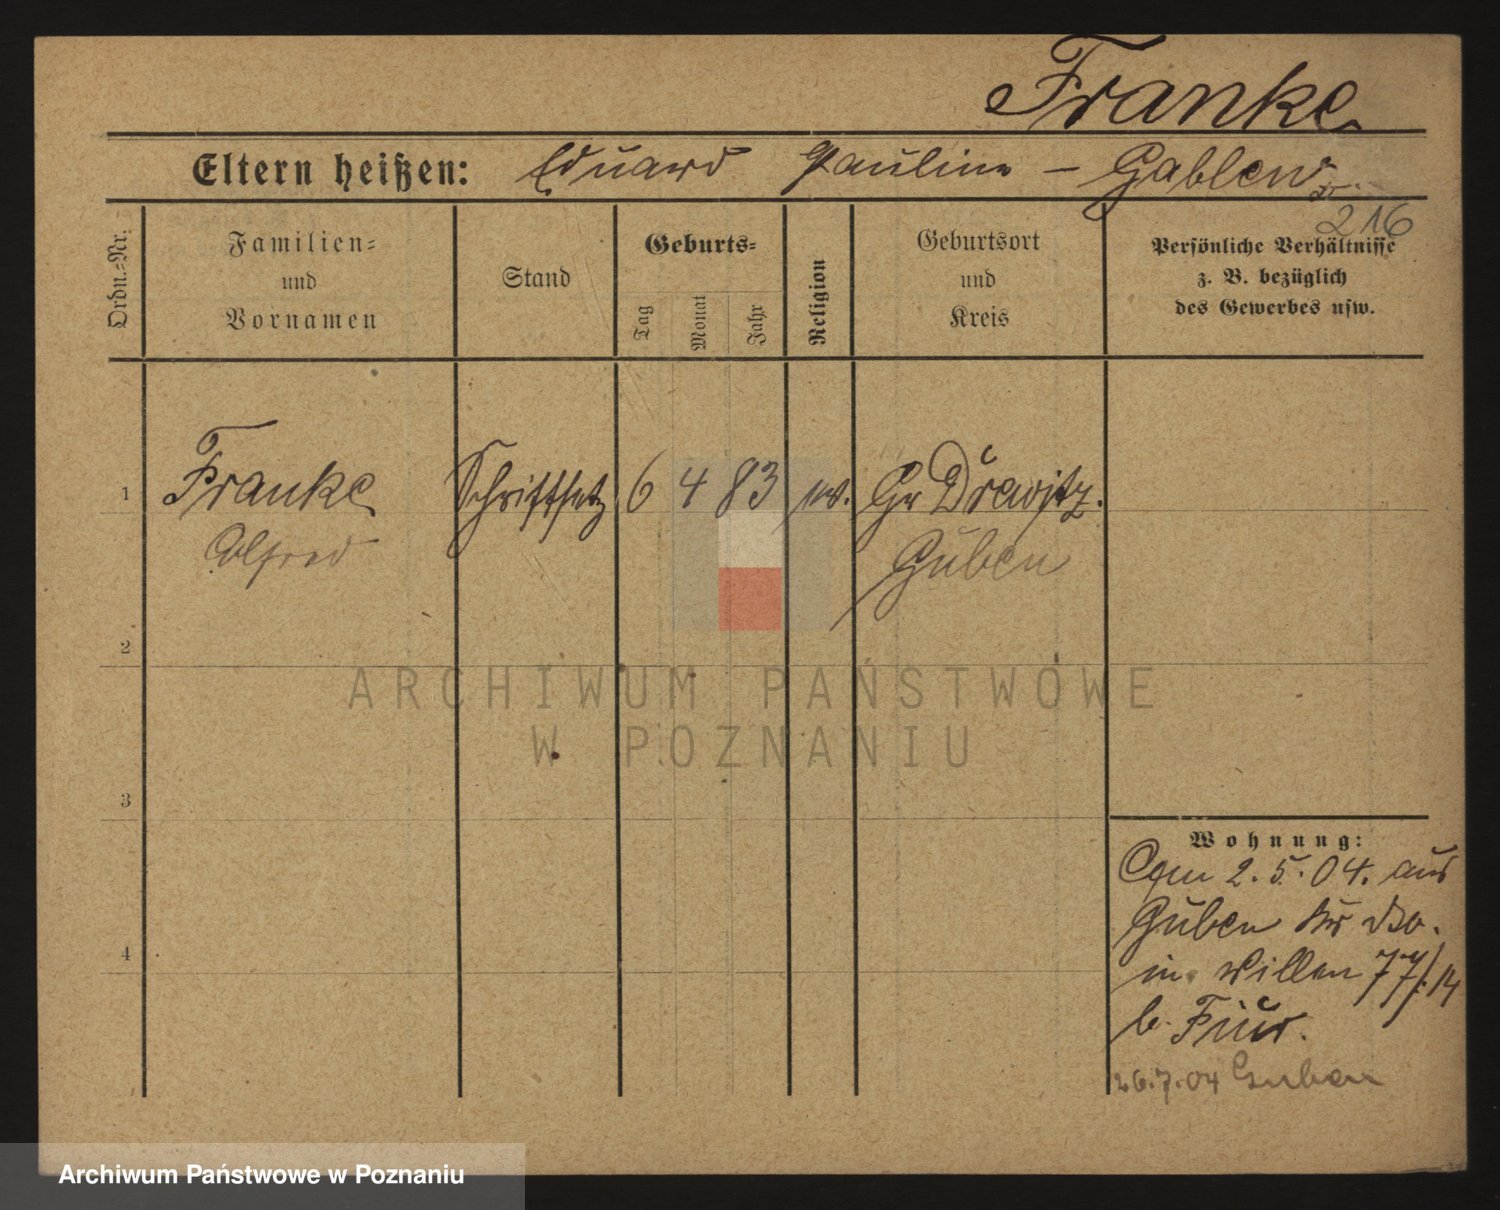 Franke
Eltern heißen: Eduard Pauline – Gablenz
216
Ordn.-Nr.
Familien- und Vornamen
Stand
Geburts-
Tag
Monat
Jahr
Religion
Geburtsort und Kreis
Persönliche Verhältnisse
z. B. bezüglich
des Gewerbes usw.
1 Franke Schriftsetz 6 4 83 ev. Gr Drewitz.
Alfred Guben
2
3
4
Wohnung:
2.5.04. aus
Guben
in 77/14
b.
26.7.04 Guben
ARCHIWUM PAŃSTWOWE
W POZNANIU
Archiwum Państwowe w Poznaniu